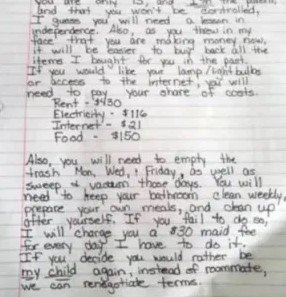 and that you won't be controlled,
I guess you will need a lesson in
independence. Also, as you threw in my
face that you are making money now,
it will be easier to buy back all the
items I bought for you in the past.
If you would like your lamp/lightbulbs
or access to the internet, you will
need to pay your share of costs.
Rent - $430
Electricity - $116
Internet - $21
Food - $150
Also, you will need to empty the
trash Mon, Wed, & Friday, as well as
sweep & vacuum those days. You will
need to keep your bathroom clean weekly,
prepare your own meals, and clean up
after yourself. If you fail to do so,
I will charge you a $30 maid fee
for every day I have to do it.
If you decide you would rather be
my child again, instead of roommate,
we can renegotiate terms.